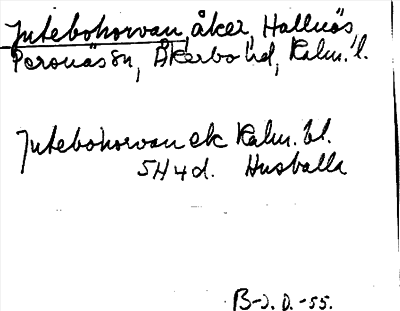 Jutebohorvan, åker, Hallnäs,
Persnäs sn, Åkerbo hd, Kalm. l.
Jutebohorvan ek Kalm. bl.
5H4d. Husvalla
B-J. D. -55.